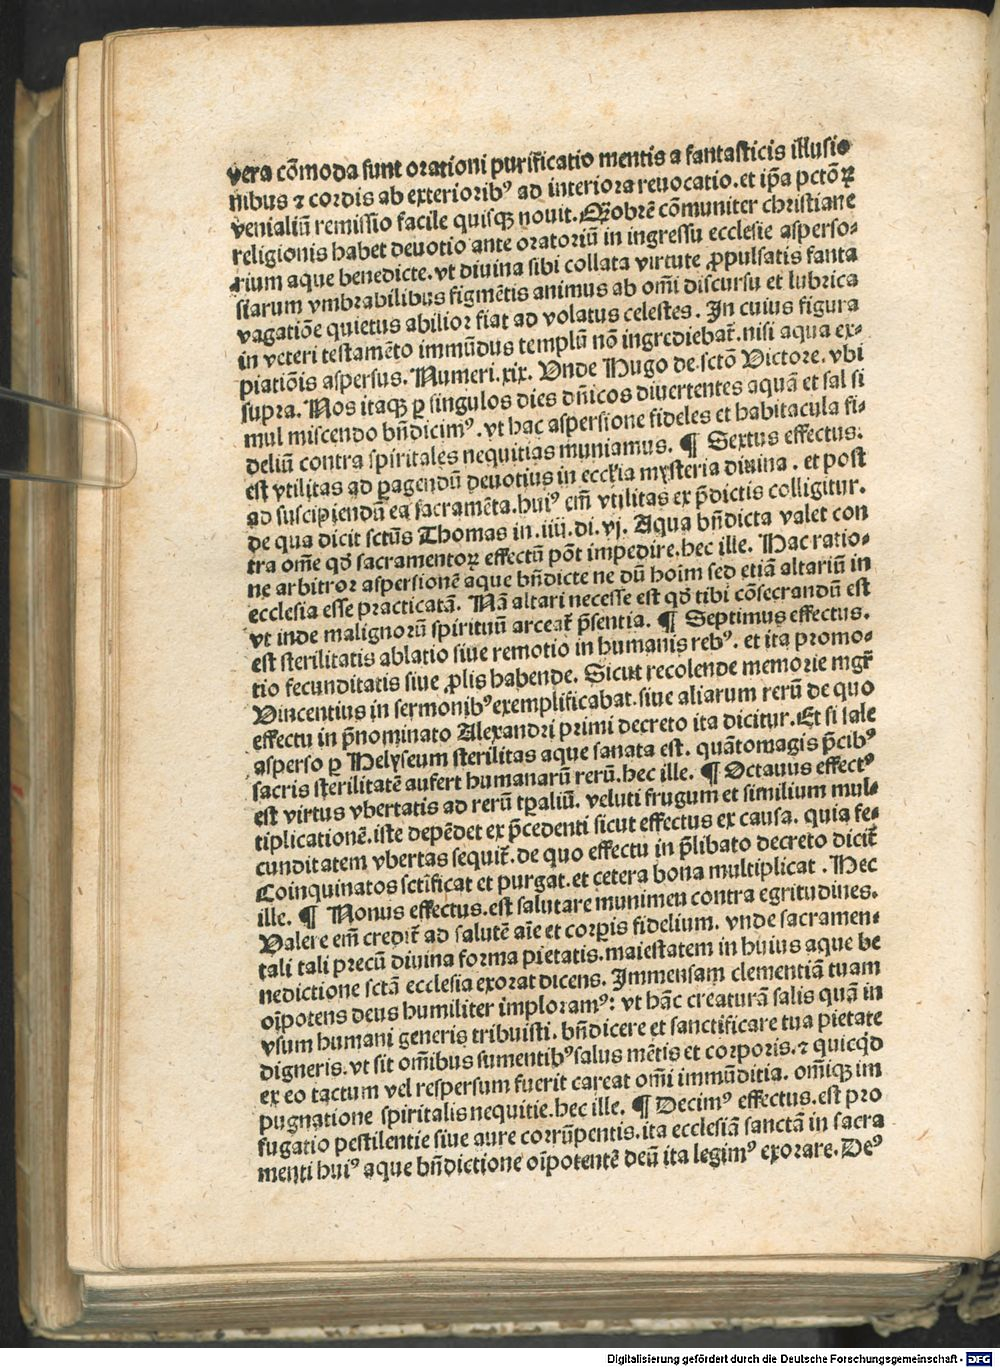 vera cōmoda sunt orationi purificatio mentis a fantasticis illusio
nibus ⁊ cordis ab exteriorib⁹ ad interiora reuocatio. et ip̄a pctōꝝ
venialiū remissio facile quisqꝫ nouit. Qobrē cōmuniter christiane
religionis habet deuotio ante oratoriū in ingressu ecclesie asperso⸗
rium aque benedicte. vt diuina sibi collata virtute ꝓpulsatis fanta
siarum vmbrabilibus figmētis animus ab om̄i discursu et lubrica
vagatiōe quietus abilior fiat ad volatus celestes. In cuius figura
in veteri testamēto immūdus templū nō ingrediebat̄. nisi aqua ex⸗
piatiōis aspersus. Numeri. xix. Vnde Hugo de sctō Victore. vbi
supra. Nos itaqꝫ ꝑ singulos dies dn̄icos diuertentes aquā et sal si
mul miscendo bn̄dicim⁹. vt hac aspersione fideles et habitacula fi⸗
deliū contra spiritales nequitias muniamus. ¶ Sextus effectus.
est vtilitas ad ꝑagendū deuotius in eccl̄ia mysteria diuina. et post
ad suscipiendū ea sacramēta. hui⁹ em̄ vtilitas ex p̄dictis colligitur.
de qua dicit sctūs Thomas in. iiij. di. vj. Aqua bn̄dicta valet con
tra om̄e qd̄ sacramentoꝝ effectū pōt impedire. hec ille. Hac ratio⸗
ne arbitror aspersionē aque bn̄dicte ne dū hoīm sed etiā altariū in
ecclesia esse practicatā. Nā altari necesse est qd̄ tibi cōsecrandū est
vt inde malignorū spirituū arceat̄ p̄sentia. ¶ Septimus effectus.
est sterilitatis ablatio siue remotio in humanis reb⁹. et ita promo⸗
tio fecunditatis siue ꝓlis habende. Sicut recolende memorie mgr̄
Vincentius in sermonib⁹ exemplificabat. siue aliarum rerū de quo
effectu in p̄nominato Alexandri primi decreto ita dicitur. Et si sale
asperso ꝑ Helyseum sterilitas aque sanata est. quātomagis p̄cib⁹
sacris sterilitatē aufert humanarū rerū. hec ille. ¶ Octauus effect⁹
est virtus vbertatis ad rerū tꝑaliū. veluti frugum et similium mul⸗
tiplicationē. iste depēdet ex p̄cedenti sicut effectus ex causa. quia fe⸗
cunditatem vbertas sequit̄. de quo effectu in p̄libato decreto dicit̄
Coinquinatos sctīficat et purgat. et cetera bona multiplicat. Hec
ille. ¶ Nonus effectus. est salutare munimen contra egritudines.
Valere em̄ credit̄ ad salutē aīe et corꝑis fidelium. vnde sacramen⸗
tali tali precū diuina forma pietatis. maiestatem in huius aque be
nedictione sctā ecclesia exorat dicens. Immensam clementiā tuam
oīpotens deus humiliter imploram⁹: vt hāc creaturā salis quā in
vsum humani generis tribuisti. bn̄dicere et sanctificare tua pietate
digneris. vt sit om̄ibus sumentib⁹ salus mētis et corporis. ⁊ quicq̇d
ex eo tactum vel respersum fuerit careat om̄i immūditia. om̄iqꝫ im
pugnatione spiritalis nequitie. hec ille. ¶ Decim⁹ effectus. est pro
fugatio pestilentie siue aure corrūpentis. ita ecclesiā sanctā in sacra
menti hui⁹ aque bn̄dictione oīpotentē deū ita legim⁹ exorare. De⁹
Digitalisierung gefördert durch die Deutsche Forschungsgemeinschaft - DFG